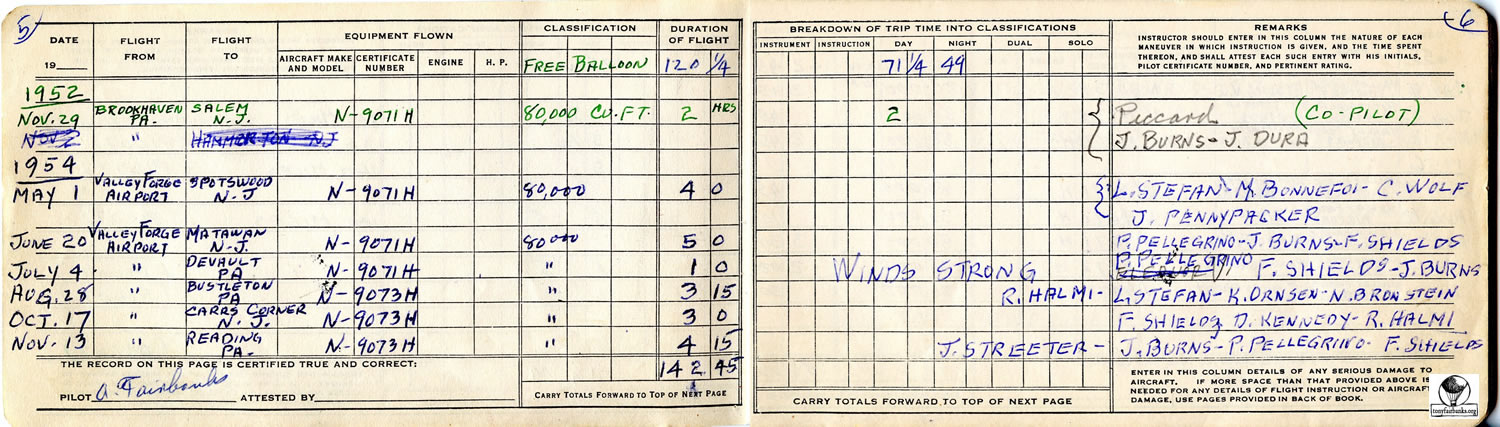 5
6
DATE
19___
FLIGHT FROM
FLIGHT TO
EQUIPMENT FLOWN
AIRCRAFT MAKE AND MODEL
CERTIFICATE NUMBER
ENGINE
H. P.
CLASSIFICATION
FREE BALLOON
DURATION OF FLIGHT
120 1/4
BREAKDOWN OF TRIP TIME INTO CLASSIFICATIONS
INSTRUMENT INSTRUCTION DAY NIGHT DUAL SOLO
71 1/4 49
REMARKS
INSTRUCTOR SHOULD ENTER IN THIS COLUMN THE NATURE OF EACH
MANEUVER IN WHICH INSTRUCTION IS GIVEN, AND THE TIME SPENT
THEREON, AND SHALL ATTEST EACH SUCH ENTRY WITH HIS INITIALS,
PILOT CERTIFICATE NUMBER, AND PERTINENT RATING.
1952
NOV. 29 BROOKHAVEN PA. SALEM N.J. N-9071H 80,000 CU.FT. 2 HRS 2 Piccard (CO-PILOT)
NOV 2 " HAMMERTON NJ J. BURNS - J. DURA
1954
MAY 1 VALLEY FORGE AIRPORT SPOTSWOOD N.J N-9071H 80,000 4 0 L. STEFAN - M. BONNEFOI - C. WOLF
J. PENNYPACKER
JUNE 20 VALLEY FORGE AIRPORT MATAWAN N.J. N-9071H 80000 5 0 P. PELLEGRINO - J. BURNS - F. SHIELDS
JULY 4 " DEVAULT PA N-9071H " 1 0 WINDS STRONG P. PELLEGRINO F. SHIELDS - J. BURNS
AUG. 28 " BUSTLETON PA N-9073H " 3 15 R. HALMI - L. STEFAN - K. ORNSEN - N. BRONSTEIN
OCT. 17 " CARRS CORNER N.J. N-9073H " 3 0 F. SHIELDS, D. KENNEDY - R. HALMI
NOV. 13 " READING PA. N-9073H " 4 15 J. STREETER - J. BURNS - P. PELLEGRINO - F. SHIELDS
THE RECORD ON THIS PAGE IS CERTIFIED TRUE AND CORRECT:
142 45
PILOT A. Fairbanks ATTESTED BY
CARRY TOTALS FORWARD TO TOP OF NEXT PAGE
CARRY TOTALS FORWARD TO TOP OF NEXT PAGE
ENTER IN THIS COLUMN DETAILS OF ANY SERIOUS DAMAGE TO
AIRCRAFT. IF MORE SPACE THAN THAT PROVIDED ABOVE IS
NEEDED FOR ANY DETAILS OF FLIGHT INSTRUCTION OR AIRCRAFT
DAMAGE, USE PAGES PROVIDED IN BACK OF BOOK.
tonyfairbanks.org